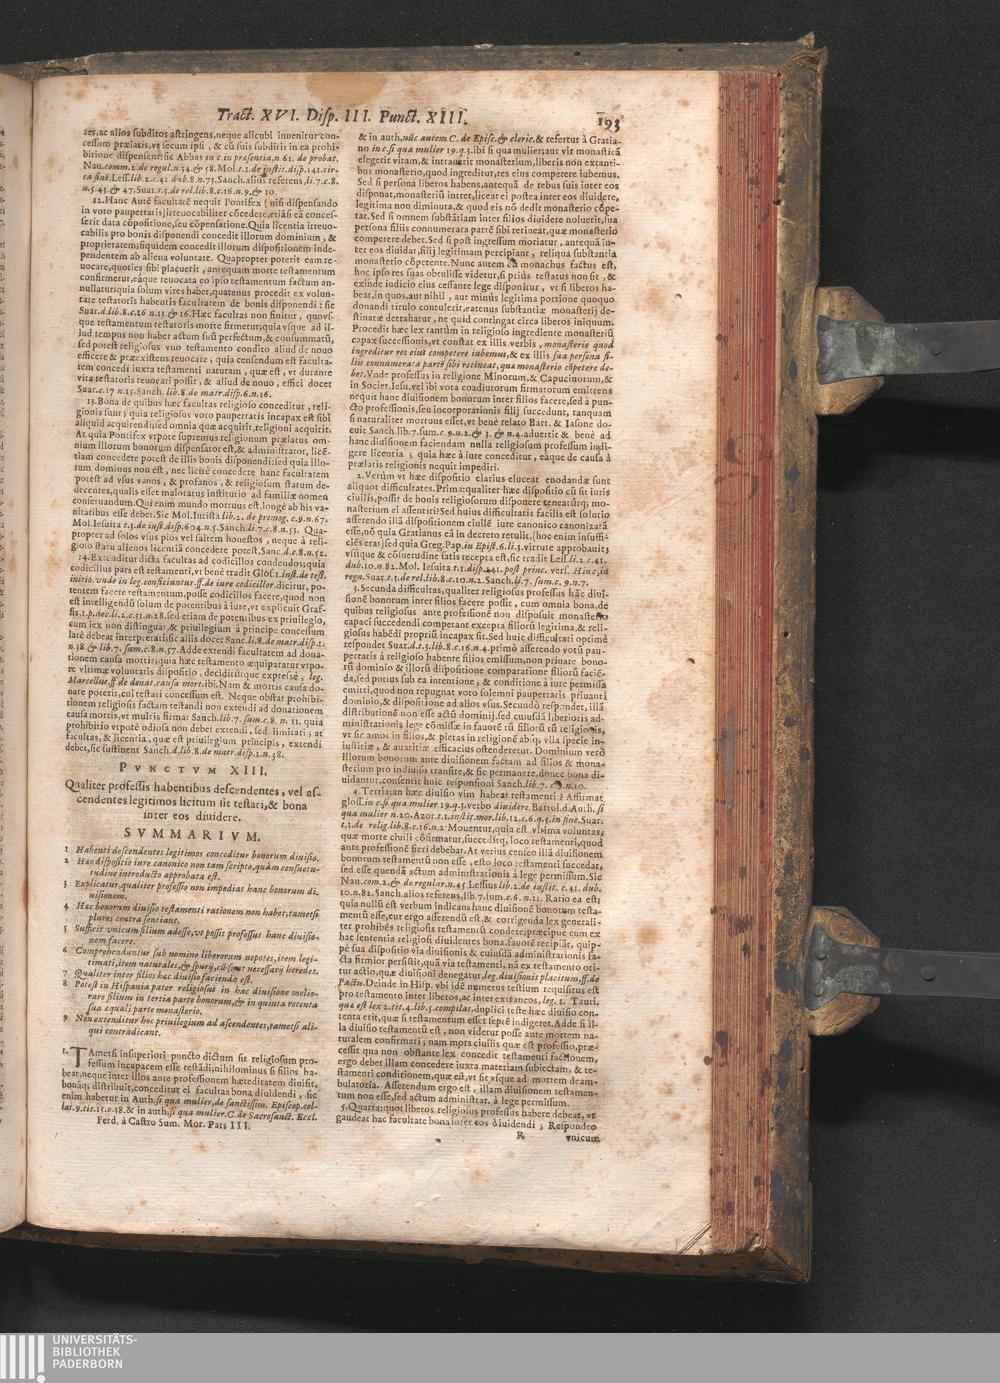 Tract. XVI. Disp. III. Punct. XIII.
193
res, ac alios subditos astringens, neque alicubi inuenitur con-
cessum prælatis, vt secum ipsi, & cū suis subditis in ea prohi-
bitione dispensent: sic Abbas in c. in præsentia, n. 61. de probat.
Nau. comm. 2. de regul. n. 34. & 58. Mol. t. 1. de iustit. disp. 141. cir-
ca finē. Less. lib. 2. c. 41 dub. 8. n. 73. Sanch. alios referens, li. 7. c. 8.
n. 5. 45. & 47. Suar. t. 3. de rel. lib. 8. c. 16. n. 9. & 10.
12. Hanc Autē facultatē nequit Pontifex (nisi dispensando
in voto paupertatis) irreuocabiliter cōcedere, etiāsi eā conces-
serit data cōpositione, seu cōpensatione. Quia licentia irreuo-
cabilis pro bonis disponendi concedit illorum dominium, &
proprietatem; siquidem concedit illorum dispositionem inde-
pendentem ab aliena voluntate. Quapropter poterit eam re-
uocare, quoties sibi placuerit, antequam morte testamentum
confirmetur, eáque reuocata eo ipso testamentum factum an-
nullatur: quia solum vires habet, quatenus procedit ex volun-
tate testatoris habentis facultatem de bonis disponendi: sic
Suar. d. lib. 8. c. 16 n. 13. & 16. Hæc facultas non finitur, quovs-
que testamentum testatoris morte firmetur; quia vsque ad il-
lud tempus non habet actum suū perfectum, & consummatū,
sed potest religiosus vno testamento condito aliud de nouo
efficere & præexistens reuocare; quia censendum est faculta-
tem concedi iuxta testamenti naturam, quæ est, vt durante
vita testatoris reuocari possit, & aliud de nouo, effici docet
Suar. c. 17 n. 15. Sanch. lib. 8. de matr. disp. 6. n. 16.
13. Bona de quibus hæc facultas religioso conceditur, reli-
gionis sunt; quia religiosus voto paupertatis incapax est sibi
aliquid acquirendi; sed omnia quæ acquirit, religioni acquirit.
At quia Pontifex vtpote supremus religionum prælatus om-
nium illorum bonorum dispensator est, & administrator, licē-
tiam concedere potest de illis bonis disponendi: sed quia illo-
rum dominus non est, nec licitè concedere hanc facultatem
potest ad vsus vanos, & profanos, & religiosum statum de-
decentes, qualis esset maioratus institutio ad familiæ nomen
conseruandum. Qui enim mundo mortuus est, longè ab his va-
nitatibus esse debet. Sic Mol. Iurista lib. 2. de primog. c. 9. n. 67.
Mol. Iesuita t. 3. de iust. disp. 604. n. 5. Sanch. li. 7. c. 8. n. 53. Qua-
propter ad solos vsus pios vel saltem honestos, neque à reli-
gioso statu alienos licentiā concedere potest, Sanc. d. c. 8. n. 52.
14. Extenditur dicta facultas ad codicillos condendos; quia
codicillus pars est testamenti, vt benè tradit Glos. t. inst. de test.
initio. vnde in leg. conficiuntur. ff. de iure codicillor. dicitur, po-
tentem facere testamentum, posse codicillos facere, quod non
est intelligendū solum de potentibus à iure, vt explicuit Graf-
fis, t. p. dec. li. 2. c. 31. n. 28. sed etiam de potentibus ex priuilegio,
cum lex non distinguat, & priuilegium à principe concessum
latè debeat interpretari: sic aliis docet Sanc. li. 8. de matr. disp. 1.
n. 38 & lib. 7. sum. c. 8. n. 57. Adde extendi facultatem ad dona-
tionem causa mortis; quia hæc testamento æquiparatur vtpo-
te vltimæ voluntatis dispositio, deciditúrque expressè, leg.
Marcellus, ff. de donat. causa mort. ibi. Nam & mortis causa do-
nare poterit, cui testari concessum est. Neque obstat prohibi-
tionem religiosis factam testandi non extendi ad donationem
causa mortis, vt multis firmat Sanch. lib. 7. sum. c. 8. n. 11. quia
prohibitio vtpotè odiosa non debet extendi, sed limitari; at
facultas, & licentia, quæ est priuilegium principis, extendi
debet, sic sustinent Sanch. d. lib. 8. de matr. disp. 1. n. 38.
PVNCTVM XIII.
Qualiter professis habentibus descendentes, vel as-
cendentes legitimos licitum sit testari, & bona
inter eos diuidere.
SVMMARIVM.
1 Habenti descendentes legitimos conceditur bonorum diuisio.
2 Hæc dispositio iure canonico non tam scripto, quàm consuetu-
tudine introducto approbata est.
3 Explicatur, qualiter professio non impediat hanc bonorum di-
uisionem.
4 Hæc bonorum diuisio testamenti rationem non habet; tametsi
plures contra sentiant.
5 Sufficit vnicum filium adesse, vt possit professus hanc diuisio-
nem facere.
6 Comprehenduntur sub nomine liberorum nepotes, item legi-
timati, item naturales, & spurij, cùm sunt necessarij heredes.
7 Qualiter inter filios hæc diuisio facienda est.
8 Potest in Hispania pater religiosus in hac diuisione melio-
rare filium in tertia parte bonorum, & in quinta retenta
sua equali parte monasterio.
9 Non extenditur hoc priuilegium ad ascendentes, tametsi ali-
qui contradicant.
1. TAmetsi in superiori puncto dictum sit religiosum pro-
fessum incapacem esse testādi, nihilominus si filios ha-
beat, neque inter illos ante professionem hæreditatem diuisit,
bonáq; distribuit, conceditur ei facultas bona diuidendi, sic
enim habetur in Auth. si qua mulier, de sanctissim. Episcop. col-
lat. 9. tit. 15. c. 38. & in auth. si qua mulier. C. de Sacrosanct. Eccl.
Ferd. à Castro Sum. Mor. Pars III.
& in auth. nūc autem C. de Episc. & cleric. & refertur à Gratia-
no in c. si qua mulier 19. q. 3. ibi si qua mulier; aut vir monasticā
elegerit vitam, & intrauerit monasterium, liberis non extanti-
bus monasterio, quod ingreditur, res eius competere iubemus.
Sed si persona liberos habens, antequā de rebus suis inter eos
disponat, monasteriū intret, liceat ei postea inter eos diuidere,
legitima non diminuta, & quod eis nō dedit monasterio cōpe-
tat. Sed si omnem substātiam inter filios diuidere noluerit, sua
persona filiis connumerata partē sibi retineat, quæ monasterio
competere debet. Sed si post ingressum moriatur, antequā in-
ter eos diuidat, filij legitimam percipiant, reliqua substantia
monasterio cōpetente. Nunc autem cū monachus factus est,
hoc ipso res suas obtulisse videtur, si priùs testatus non sit, &
exinde iudicio eius cessante lege disponitur, vt si liberos ha-
beat, in quos, aut nihil, aut minus legitima portione quoquo
donandi titulo contulerit, eatenus substantiæ monasterij de-
stinatæ detrahatur, ne quid contingat circa liberos iniquum.
Procedit hæc lex tantùm in religioso ingrediente monasteriū
capax successionis, vt constat ex illis verbis, monasterio quod
ingreditur res eius competere iubemus, & ex illis sua persona fi-
liis connumerata partē sibi retineat, quæ monasterio cōpetere de-
bet. Vnde professus in religione Minorum, & Capucinorum, &
in Societ. Iesu, vel ibi vota coadiutorum firmatorum emittens
nequit hanc diuisionem bonorum inter filios facere, sed à pun-
cto professionis, seu incorporationis filij succedunt, tanquam
si naturaliter mortuus esset, vt benè relato Bart. & Iasone do-
cuit Sanch. lib. 7. sum. c. 9. n. 2. & 3. & n. 4. aduertit & benè ad
hanc diuisionem faciendam nulla religiosum professum indi-
gere licentia; quia hæc à iure conceditur, eáque de causa à
prælatis religionis nequit impediri.
2. Verùm vt hæc dispositio clarius eluceat enodandæ sunt
aliquot difficultates. Prima: qualiter hæc dispositio cū sit iuris
ciuilis, possit de bonis religiosorum disponere teneatúrq; mo-
nasterium ei assentiri? Sed huius difficultatis facilis est solutio
asserendo illā dispositionem ciuilē iure canonico canonizatā
esse, nō quia Gratianus eā in decreto retulit, (hoc enim insuffi-
ciēs erat) sed quia Greg. Pap. in Epist. 6. li. 3. virtute approbauit;
vsúque & cōsuetudine satis recepta est, sic tradit Less. li. 2. c. 41.
dub. 10. n. 82. Mol. Iesuita t. 1. disp. 141. post princ. vers. Hinc, in
regn. Suar. t. 3. de rel. lib. 8. c. 10. n. 2. Sanch. li. 7. sum. c. 9. n. 7.
3. Secunda difficultas, qualiter religiosus professus hāc diui-
sionē bonorum inter filios facere possit, cum omnia bona, de
quibus religiosus ante professionē non disposuit monasterio
capaci succedendi competant excepta filiorū legitima, & reli-
giosus habēdi propriū incapax sit. Sed huic difficultati optimè
respondet Suar. d. t. 3. lib. 8. c. 16. n. 4. primò asserendo votū pau-
pertatis à religioso habente filios emissum, non priuare bono-
rū dominio & illorū dispositione comparatione filiorū faciē-
da, sed potius sub ea intentione, & conditione à iure permissa
emitti, quod non repugnat voto solemni paupertatis priuanti
dominio, & dispositione ad alios vsus. Secundò respondet, illā
distributionē non esse actū dominij, sed cuiusdā liberioris ad-
ministrationis lege cōmissæ in fauorē tū filiorū tū religionis,
vt sic amor in filios, & pietas in religionē absq; vlla specie in-
iustitiæ, & auaritiæ efficacius ostenderetur. Dominium verò
illorum bonorum ante diuisionem factam ad filios & mona-
sterium pro indiuiso transire, & sic permanere, donec bona di-
uidantur, consentit huic responsioni Sanch. lib. 7. c. 9. n. 10.
4. Tertia; an hæc diuisio vim habeat testamenti? Affirmat
gloss. in c. si qua mulier 19. q. 3. verbo diuidere. Bartol. d. Auth. si
qua mulier n. 20. Azor. t. 1. instit. mor. lib. 12. c. 6. q. 5. in fine. Suar.
t. 3. de relig. lib. 8. c. 16. n. 2. Mouentur, quia est vltima voluntas;
quæ morte ciuili cōfirmatur, succedítq; loco testamenti, quod
ante professionē fieri debebat. At verius censeo illā diuisionem
bonorum testamentū non esse, esto loco testamenti succedat,
sed esse quendā actum administrationis à lege permissum. Sic
Nau. com. 2. & de regular. n. 45. Lessius lib. 2. de iustit. c. 41. dub.
10. n. 82. Sanch. alios referens, lib. 7. sum. c. 6. n. 11. Ratio ea est;
quia nullū est verbum indicans hanc diuisionē bonorum testa-
mentū esse, cur ergo asserendū est, & corrigenda lex generali-
ter prohibēs religiosis testamentū condere; præcipue cum ex
hac sententia religiosi diuidentes bona. fauorē recipiāt, quip-
pè sua dispositio via diuisionis & cuiusdā administrationis fa-
cta firmior persistit, quā via testamenti, nā ex testamento ori-
tur actio, quæ diuisioni denegatur, leg. diuisionis placitum, ff. de
Pactis. Deinde in Hisp. vbi idē numerus testium requisitus est
pro testamento inter liberos, ac inter extraneos, leg. 1. Tauri,
quæ est lex 2. tit. 4. lib. 5. compilat. duplici teste hæc diuisio con-
tenta erit, quæ si testamentum esset septē indigeret. Adde si il-
la diuisio testamentū est, non videtur posse ante mortem na-
turalem confirmari; nam mors ciuilis quæ est professio, præ-
cessit qua non obstante lex concedit testamenti factionem,
ergo debet illam concedere iuxta materiam subiectam, & te-
stamenti conditionem, quæ est, vt sit vsque ad mortem deam-
bulatoria. Asserendum ergo est, illam diuisionem testamen-
tum non esse, sed actum administrat. à lege permissum.
5. Quarta: quot liberos religiosus professus habere debeat, vt
gaudeat hac facultate bona inter eos diuidendi; Respondeo
R
vnicum
UNIVERSITÄTS-
BIBLIOTHEK
PADERBORN